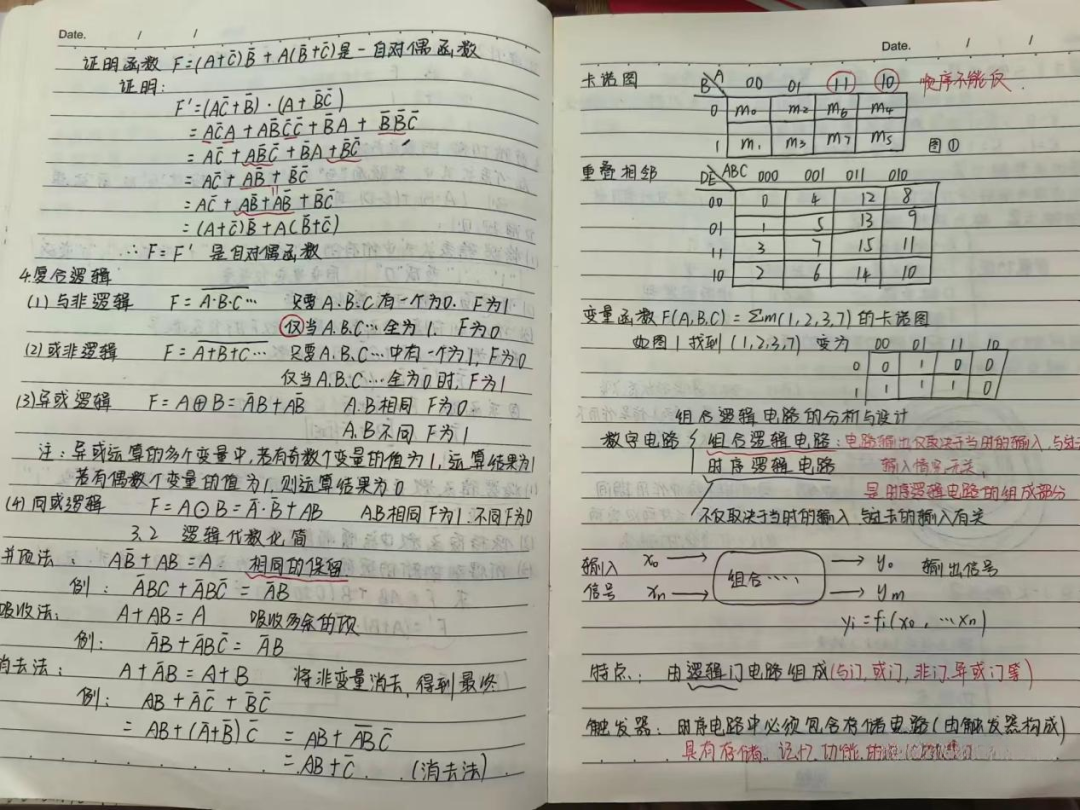 Date. / /
证明函数 F=(A+C̄)B̄+A(B̄+C̄)是一自对偶函数
证明:
F'=(AC̄+B̄)·(A+B̄C̄)
=AC̄A+AB̄C̄C̄+B̄A+B̄B̄C̄
=AC̄+AB̄C̄+B̄A+B̄C̄
=AC̄+AB̄+B̄C̄
=AC̄+AB̄+AB̄+B̄C̄
=(A+C̄)B̄+A(B̄+C̄)
∴F=F' 是自对偶函数
4.复合逻辑
(1)与非逻辑 F=A·B·C⋯ 只要A.B.C有一个为0. F为1
仅当A.B.C⋯全为1, F为0
(2)或非逻辑 F=A+B+C⋯ 只要A.B.C⋯中有一个为1,F为0
仅当A.B.C⋯全为0时,F为1
(3)异或逻辑 F=A⊕B=ĀB+AB̄ A.B相同 F为0
A.B不同 F为1
注:异或运算的多个变量中,若有奇数个变量的值为1,运算结果为1
若有偶数个变量的值为1,则运算结果为0
(4)同或逻辑 F=A⊙B=Ā·B̄+AB A.B相同F为1.不同F为0
3.2 逻辑代数化简
并项法: AB̄+AB=A 相同的保留
例: ĀBC+ĀBC̄=ĀB
吸收法: A+AB=A 吸收多余的项
例: ĀB+ĀBC̄=ĀB
消去法: A+ĀB=A+B 将非变量消去,得到最终
例: AB+ĀC̄+B̄C̄
=AB+(Ā+B̄)C̄ =AB+A̅B̅C̄
=AB+C̄ (消去法)
Date. / /
卡诺图 B A 00 01 11 10 顺序不能反
0 m₀ m₂ m₆ m₄
1 m₁ m₃ m₇ m₅ 图①
重叠相邻 DE ABC 000 001 011 010
00 0 4 12 8
01 1 5 13 9
11 3 7 15 11
10 2 6 14 10
变量函数F(A,B,C)=Σm(1,2,3,7)的卡诺图
如图1找到(1,2,3,7) 变为 00 01 11 10
0 0 1 0 0
1 1 1 1 0
组合逻辑电路的分析与设计
数字电路 组合逻辑电路:电路输出仅取决于当时的输入,与过去
时序逻辑电路 输入信号无关,
是时序逻辑电路的组成部分
不仅取决于当时的输入,与过去的输入有关
输入 x₀ 组合⋯⋯ y₀ 输出信号
信号 xₙ yₘ
yᵢ=fᵢ(x₀,⋯xₙ)
特点: 由逻辑门电路组成(与门,或门,非门,异或门等)
触发器: 时序电路中必须包含存储电路(由触发器构成)
具有存储、记忆功能